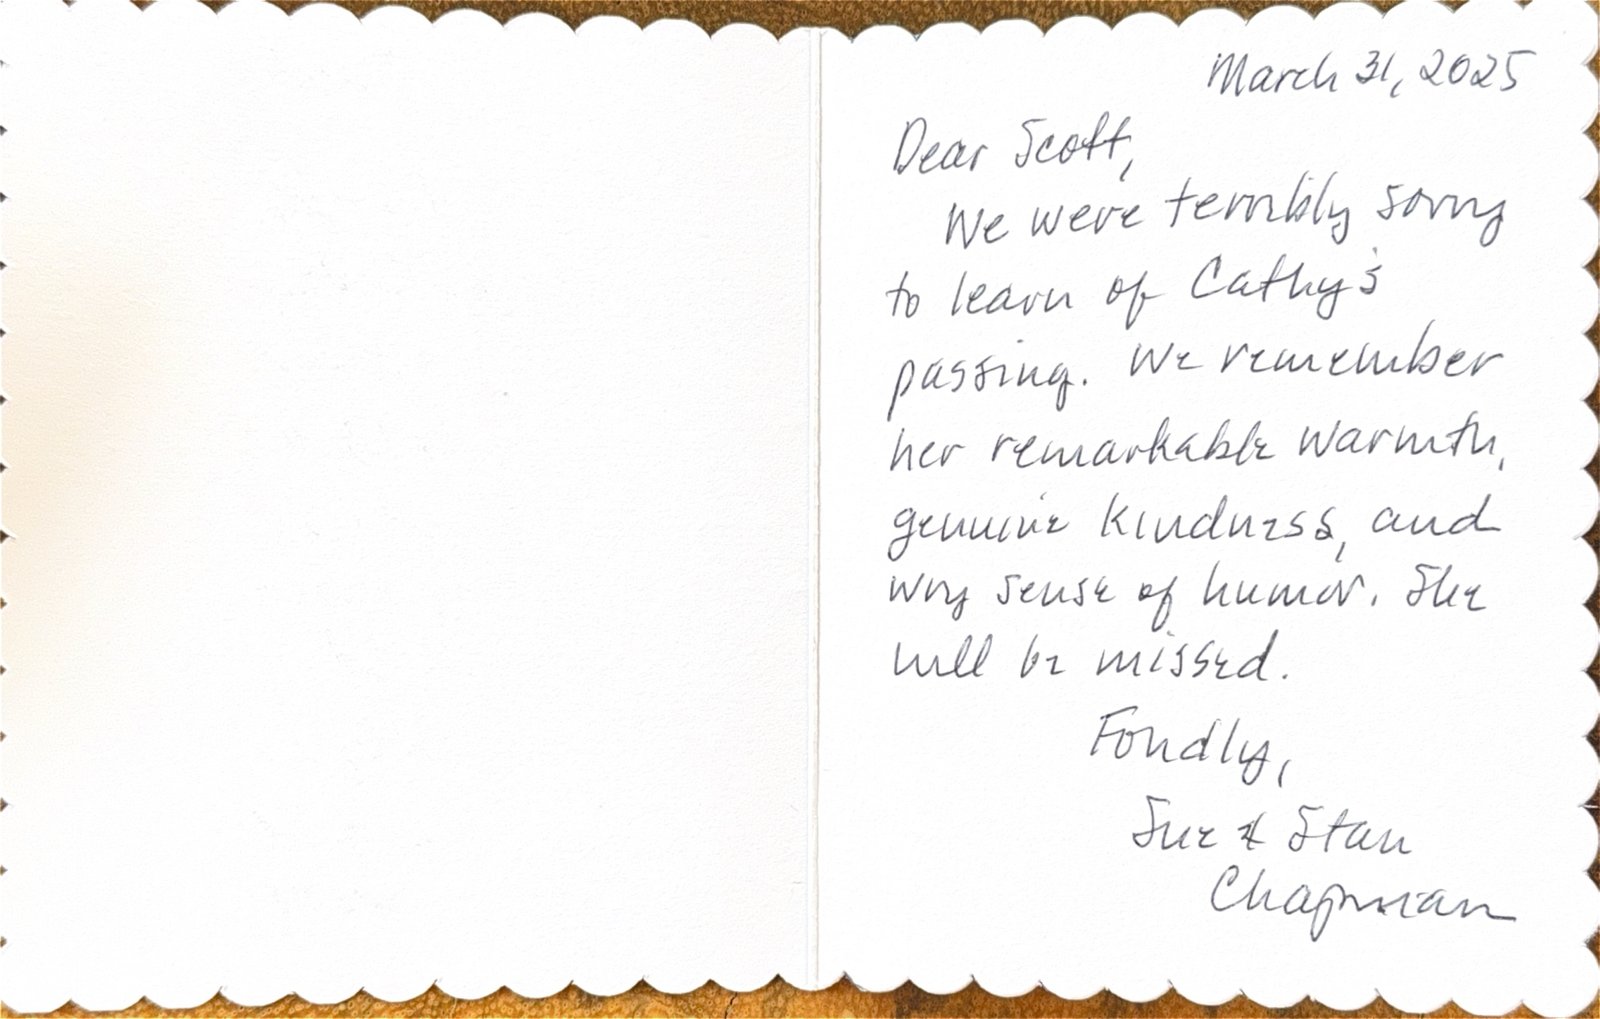 March 31, 2025
Dear Scott,
We were terribly sorry
to learn of Cathy's
passing. We remember
her remarkable warmth,
genuine kindness, and
wry sense of humor. She
will be missed.
Fondly,
Sue & Stan
Chapman